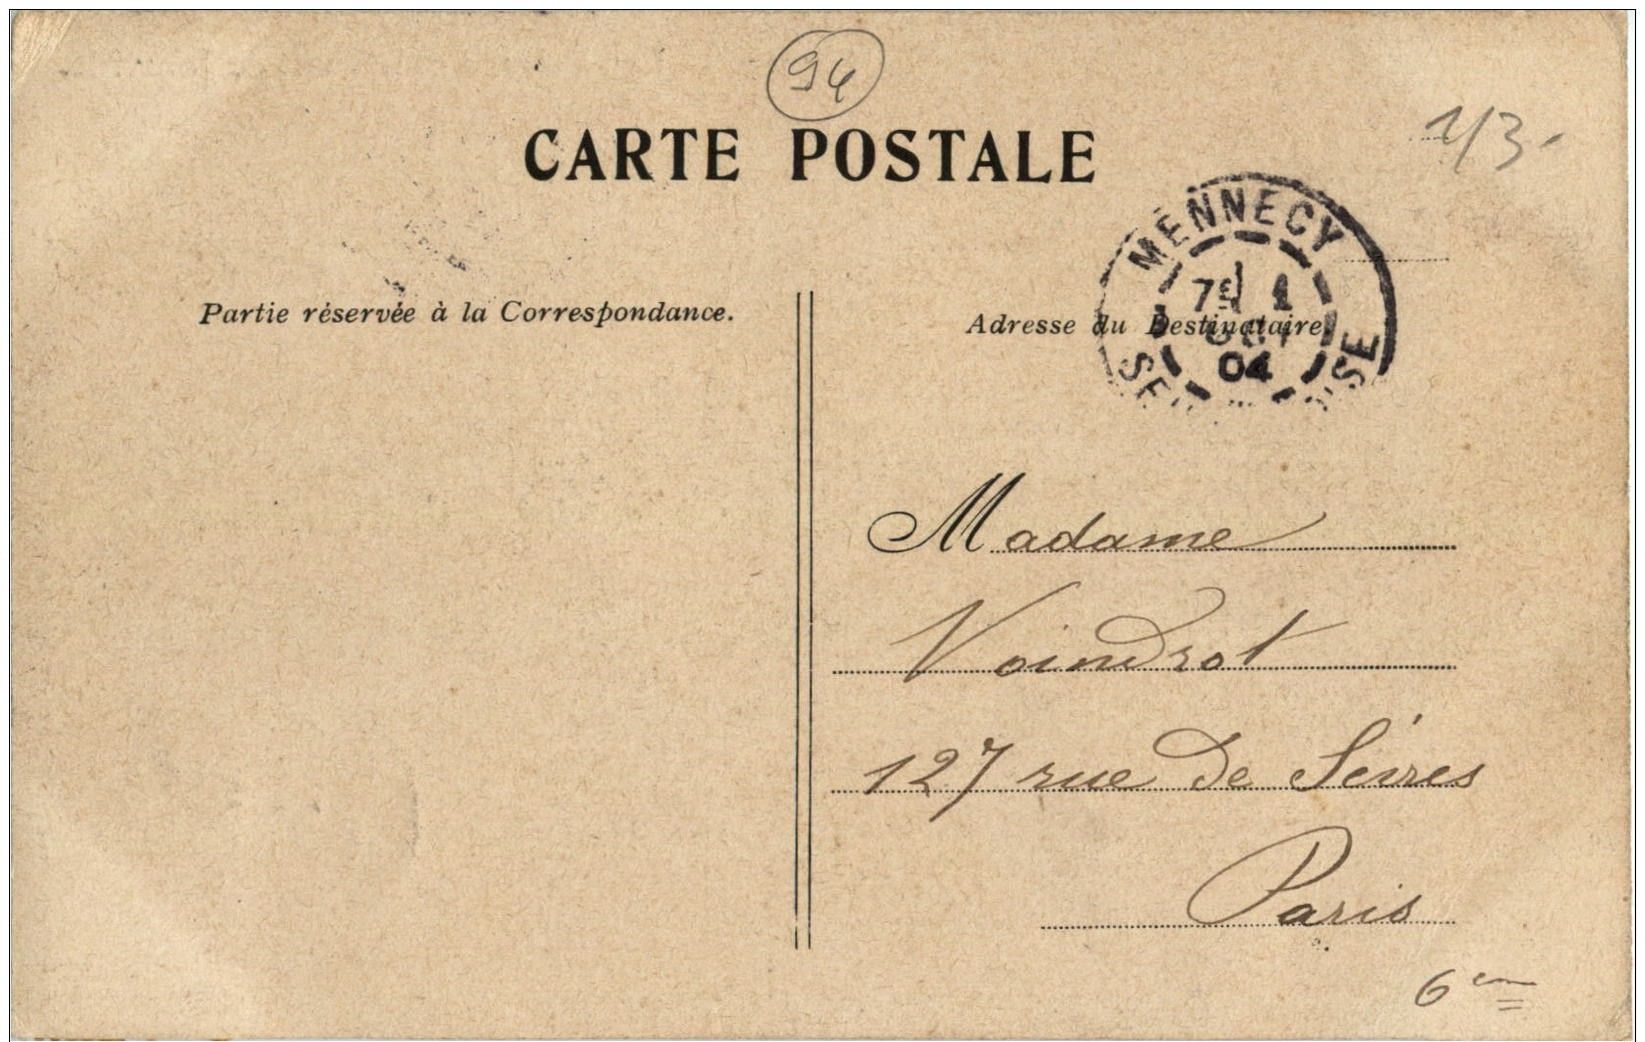 94
1/3.
CARTE POSTALE
MENNECY
7E 1
OCT
04
SEINE-ET-OISE
Partie réservée à la Correspondance.
Adresse du Destinataire.
Madame
Voindrot
127 rue de Sèvres
Paris
6em